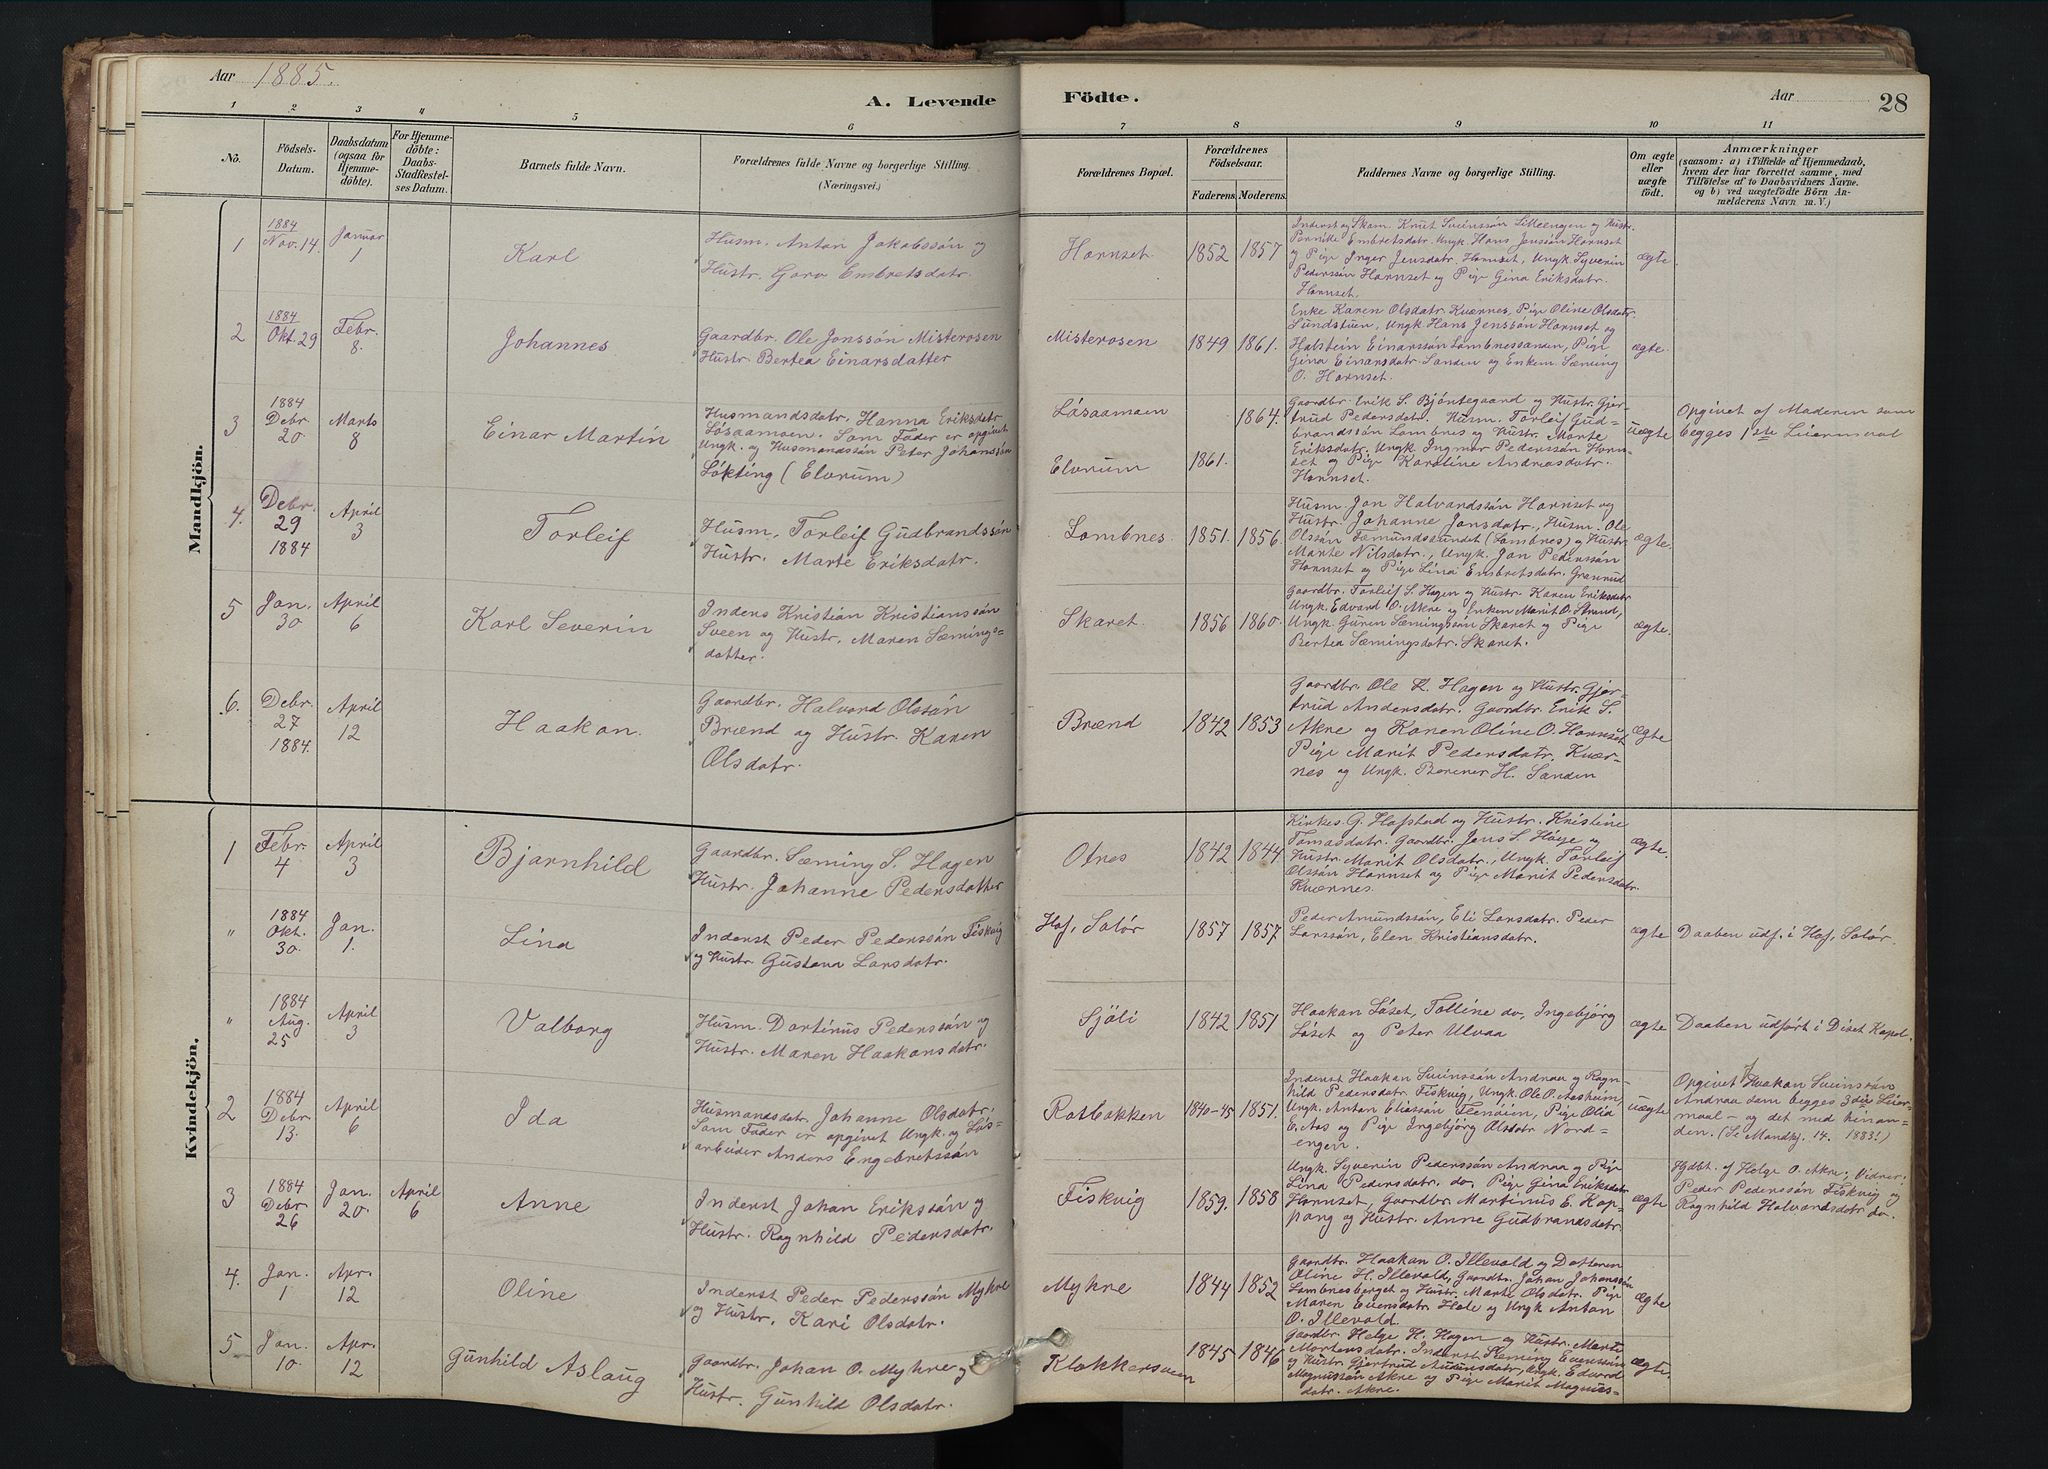 Aar 1885.
A. Levende
Födte.
Aar
28
1
2
3
4
5
6
7
8
9
10
11
No.
Födsels-
Datum.
Daabsdatum
(ogsaa for
Hjemme-
döbte).
For Hjemme-
döbte:
Daabs-
Stadfæstel-
ses Datum.
Barnets fulde Navn.
Forældrenes fulde Navne og borgerlige Stilling.
(Næringsvei.)
Forældrenes Bopæl.
Forældrenes
Födselsaar.
Faderens.
Moderens.
Faddernes Navne og borgerlige Stilling.
Om ægte
eller
uægte
födt.
Anmærkninger
(saasom: a) i Tilfælde af Hjemmedaab,
hvem der har forrettet samme, med
Tilföielse af to Daabsvidners Navne.
og b) ved uægtefödte Börn An-
melderens Navn m. V.)
Mandkjön.
1
1884
Nov. 14
Januar
1
Karl
Husm. Anton Jakobssön og
Hustr. Goro Embretsdatr.
Hornset.
1852
1857
Inderst og Skom. Knut Svenssön Litleengen og Hustr.
Pernille Embretsdatr. Ungk. Hans Jenssön Hornset
og Pige Inger Jensdatr. Hornset, Ungk. Syverin
Pederssön Hornset og Pige Gina Eriksdatr.
Hornset.
ægte
2
1884
Okt. 29
Febr.
8.
Johannes
Gaardbr. Ole Jonssön Misterosen
Hustr. Bertea Einarsdatter
Misterosen
1849
1861.
Enke Karen Olsdatr. Kværnes, Pige Oline Olsdatr.
Sundstuen, Ungk. Hans Jenssön Hornset og
Halstein Einarssön Lombnessanden, Pige
Gina Einarsdatr. Sanden og Enkem. Sæming
O. Hornset.
ægte.
3
1884
Debr
20.
Marts
8
Einar Martin
Husmandsdatr. Hanna Eriksdatr.
Lösaamoen. Som Fader er opgivet
Ungk. og Husmandssön Peter Johanssön
Lökting (Elvrum)
Lösaamoen
Elvrum
1861.
1864.
Gaardbr. Erik S. Bjöntegaard og Hustr. Gjer-
trud Pedersdatr. Husm. Torleif Gud-
brandssön Lombnes og Hustr. Marte
Eriksdatr. Ungk. Ingmar Pederssön Horn-
set og Pige Karoline Andreasdatr.
Hornset.
uægte
Opgivet af Moderen som
begges 1ste Leiermaal
4.
Debr.
29
1884
April
3
Torleif
Husm. Torleif Gudbrandssön
Hustr. Marte Eriksdatr.
Lombnes.
1851.
1856.
Husm. Jon Halvardssön Hornset og
Hustr. Johanne Jonsdatr., Husm. Ole
Olssön Femundssundet (Lombnes) og Hustr.
Marte Nilsdatr., Ungk. Jon Pederssön
Hornset og Pige Lina Embretsdatr. Granrud
ægte.
5
Jan.
30
April
6
Karl Severin
Inders Kristian Kristianssön
Sveen og Hustr. Maren Sæmings-
datter.
Skaret.
1856
1860.
Gaardbr. Torleif S. Hagen og Hustr. Karen Eriksdatr
Ungk. Edvard O. Akre og Enken Marit O. Strand,
Ungk. Guren Sæmingssön Skaret og Pige
Bertea Sæmingsdatr. Skaret.
ægte.
6.
Debr.
27
1884.
April
12
Haakon.
Gaardbr. Halvord Olssön
Brænd og Hustr. Karen
Olsdatr.
Brænd
1842
1853
Gaardbr. Ole K. Hagen og Hustr. Gjer-
trud Andersdatr. Gaardbr. Erik S.
Akre og Konen Oline O. Hornset
Pige Marit Pedersdatr. Kvær-
nes og Ungk. Berener H. Sanden
ægte
Kvindekjön.
1
Febr.
4
April
3
Bjarnhild
Gaardbr. Sæming S. Hagen
Hustr. Johanne Pedersdatter
Otnes
1842
1844
Kirkes. G. Hofstad og Hustr. Kristine
Tomasdatr. Gaardbr. Jens S. Höye og
Hustr. Marit Olsdatr., Ungk. Torleif
Olssön Hornset og Pige Marit Pedersdatr.
Kværnes.
ægte.
"
1884
Okt.
30.
Jan.
1.
Lina
Inderst Peder Pederssön Fiskvig
og Hustr. Gustava Larsdatr.
Hof, Solör
1857
1857
Peder Amundssön, Eli Larsdatr. Peder
Larssön, Elen Kristiansdatr.
ægte
Daaben udf. i Hof, Solör.
"
1884
Aug.
25
April
3
Valborg
Husm. Dortinus Pederssön og
Hustr. Maren Haakonsdatr.
Sjöli
1842
1851
Haakon Löset, Tolline do, Ingebjörg
Löset og Peter Ulvaa
ægte
Daaben udfört i Diset Kapel.
2
1884
Debr.
13.
April
6
Ida
Husmandsdatr. Johanne Olsdatr.
Som Fader er opgivet Ungk. og Lös-
arbeider Anders Engebretssön
Rotbakken
1840-45
1851.
Inderst Haakon Svenssön Andraa og Ragn-
hild Pedersdatr. Fiskvig, Ungk. Ole O. Aasheim
Ungk. Anton Eliassön Flenöien, Pige Olia
E. Aas og Pige Ingebjörg Olsdatr Nord-
engen.
uægte
Opgivet f Haakon Svenssön
Andraa som begges 3die Leier-
maal - og det med hinan-
den. (Se Mandkj. 14. 1883!)
3
1884
Debr
26
Jan.
20.
April
6
Anne
Inderst Johan Erikssön og
Hustr. Ragnhild Pedersdatr.
Fiskvig
1859.
1858
Ungk. Syverin Pederssön Andraa og Pige
Lina Pedersdatr. do, Pige Gina Eriksdatr
Hornset, Gaardbr. Martinus E. Kop-
pang og Hustr. Anne Gudbrandsdatr.
ægte
Hjdbt. af Helge O. Akre; Vidner:
Peder Pederssön Fiskvig og
Ragnhild Halvordsdatr do.
4.
Jan.
1
Apr.
12
Oline
Inderst Peder Pederssön Mykre
og Hustr. Kari Olsdatr.
Mykre
1844
1852
Gaardbr. Haakon O. Illevold og Datteren
Oline H. Illevold, Gaardbr. Johan Johanssön
Lombnesberget og Hustr. Marte Olsdatr. Pige
Maren Evensdatr. Hole og Ungk Anton
O. Illevold.
ægte
5
Jan.
10.
Apr.
12
Gunhild Aslaug
Gaardbr. Johan O. Mykre og
Hustr. Gunhild Olsdatr.
Klokkersveen
1845
1846
Gaardbr. Helge H. Hagen og Hustr. Marte
Mortensdatr. Inderst Sæming Evenssön
og Hustr. Gjertrud Audensdatr., Ungk. Edvard
Magnussön Akre og Pige Marit Magnus-
datr. Akre.
ægte.